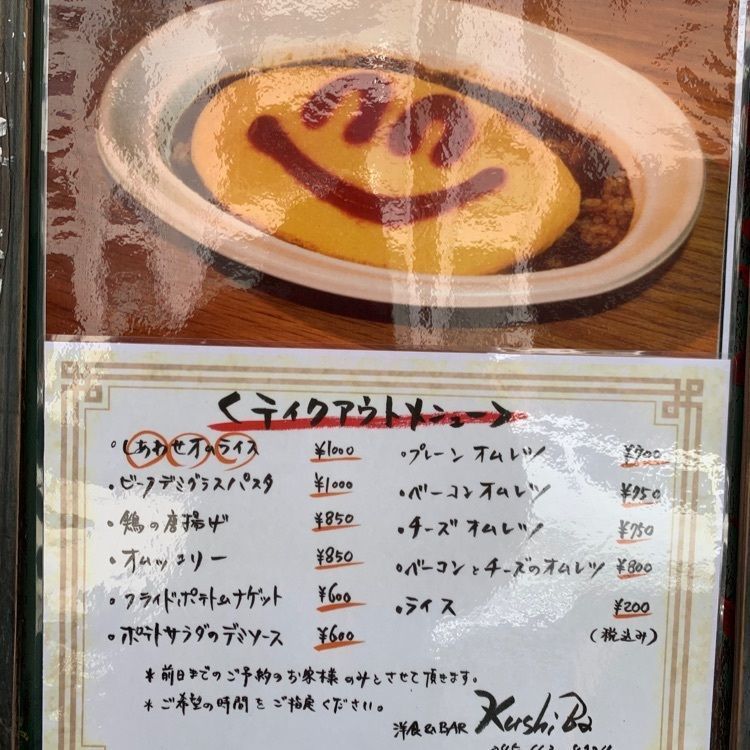 <テイクアウトメニュー>
・しあわせオムライス ¥1000
・ビーフデミグラスパスタ ¥1000
・鶏の唐揚げ ¥850
・オムッコリー ¥850
・フライドポテト&ナゲット ¥600
・ポテトサラダのデミソース ¥600
・プレーンオムレツ ¥700
・ベーコンオムレツ ¥750
・チーズオムレツ ¥750
・ベーコンとチーズのオムレツ ¥800
・ライス ¥200
(税込み)
*前日までのご予約のお客様のみとさせて頂きます。
*ご希望の時間をご指定ください。
洋食&BAR KushiBa